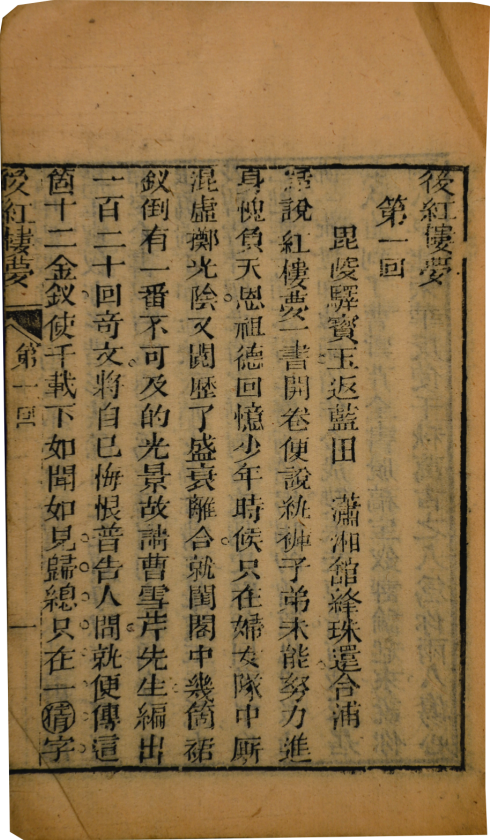 後紅樓夢
第一回
毘陵驛寶玉返藍田　瀟湘舘絳珠還合浦
話說紅樓夢一書開卷便說紈褲子弟未能努力進
身愧負天恩祖德回憶少年時候只在婦女隊中厮
混虛擲光陰又閱歷了盛衰離合就閨閣中幾箇裙
釵倒有一番不可及的光景故請曹雪芹先生編出
一百二十回奇文將自己悔恨普告人間就便傳這
箇十二金釵使千載下如聞如見歸總只在一情字
後紅樓夢　第一回　一